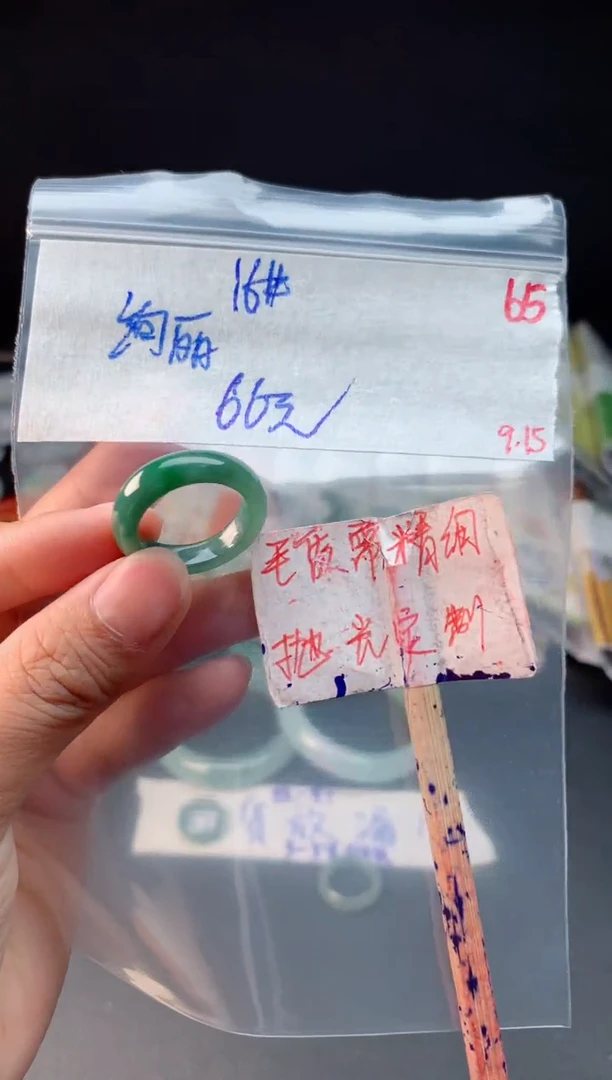 16#
65
绚丽
66元
9.15
毛货需精细
抛光定制